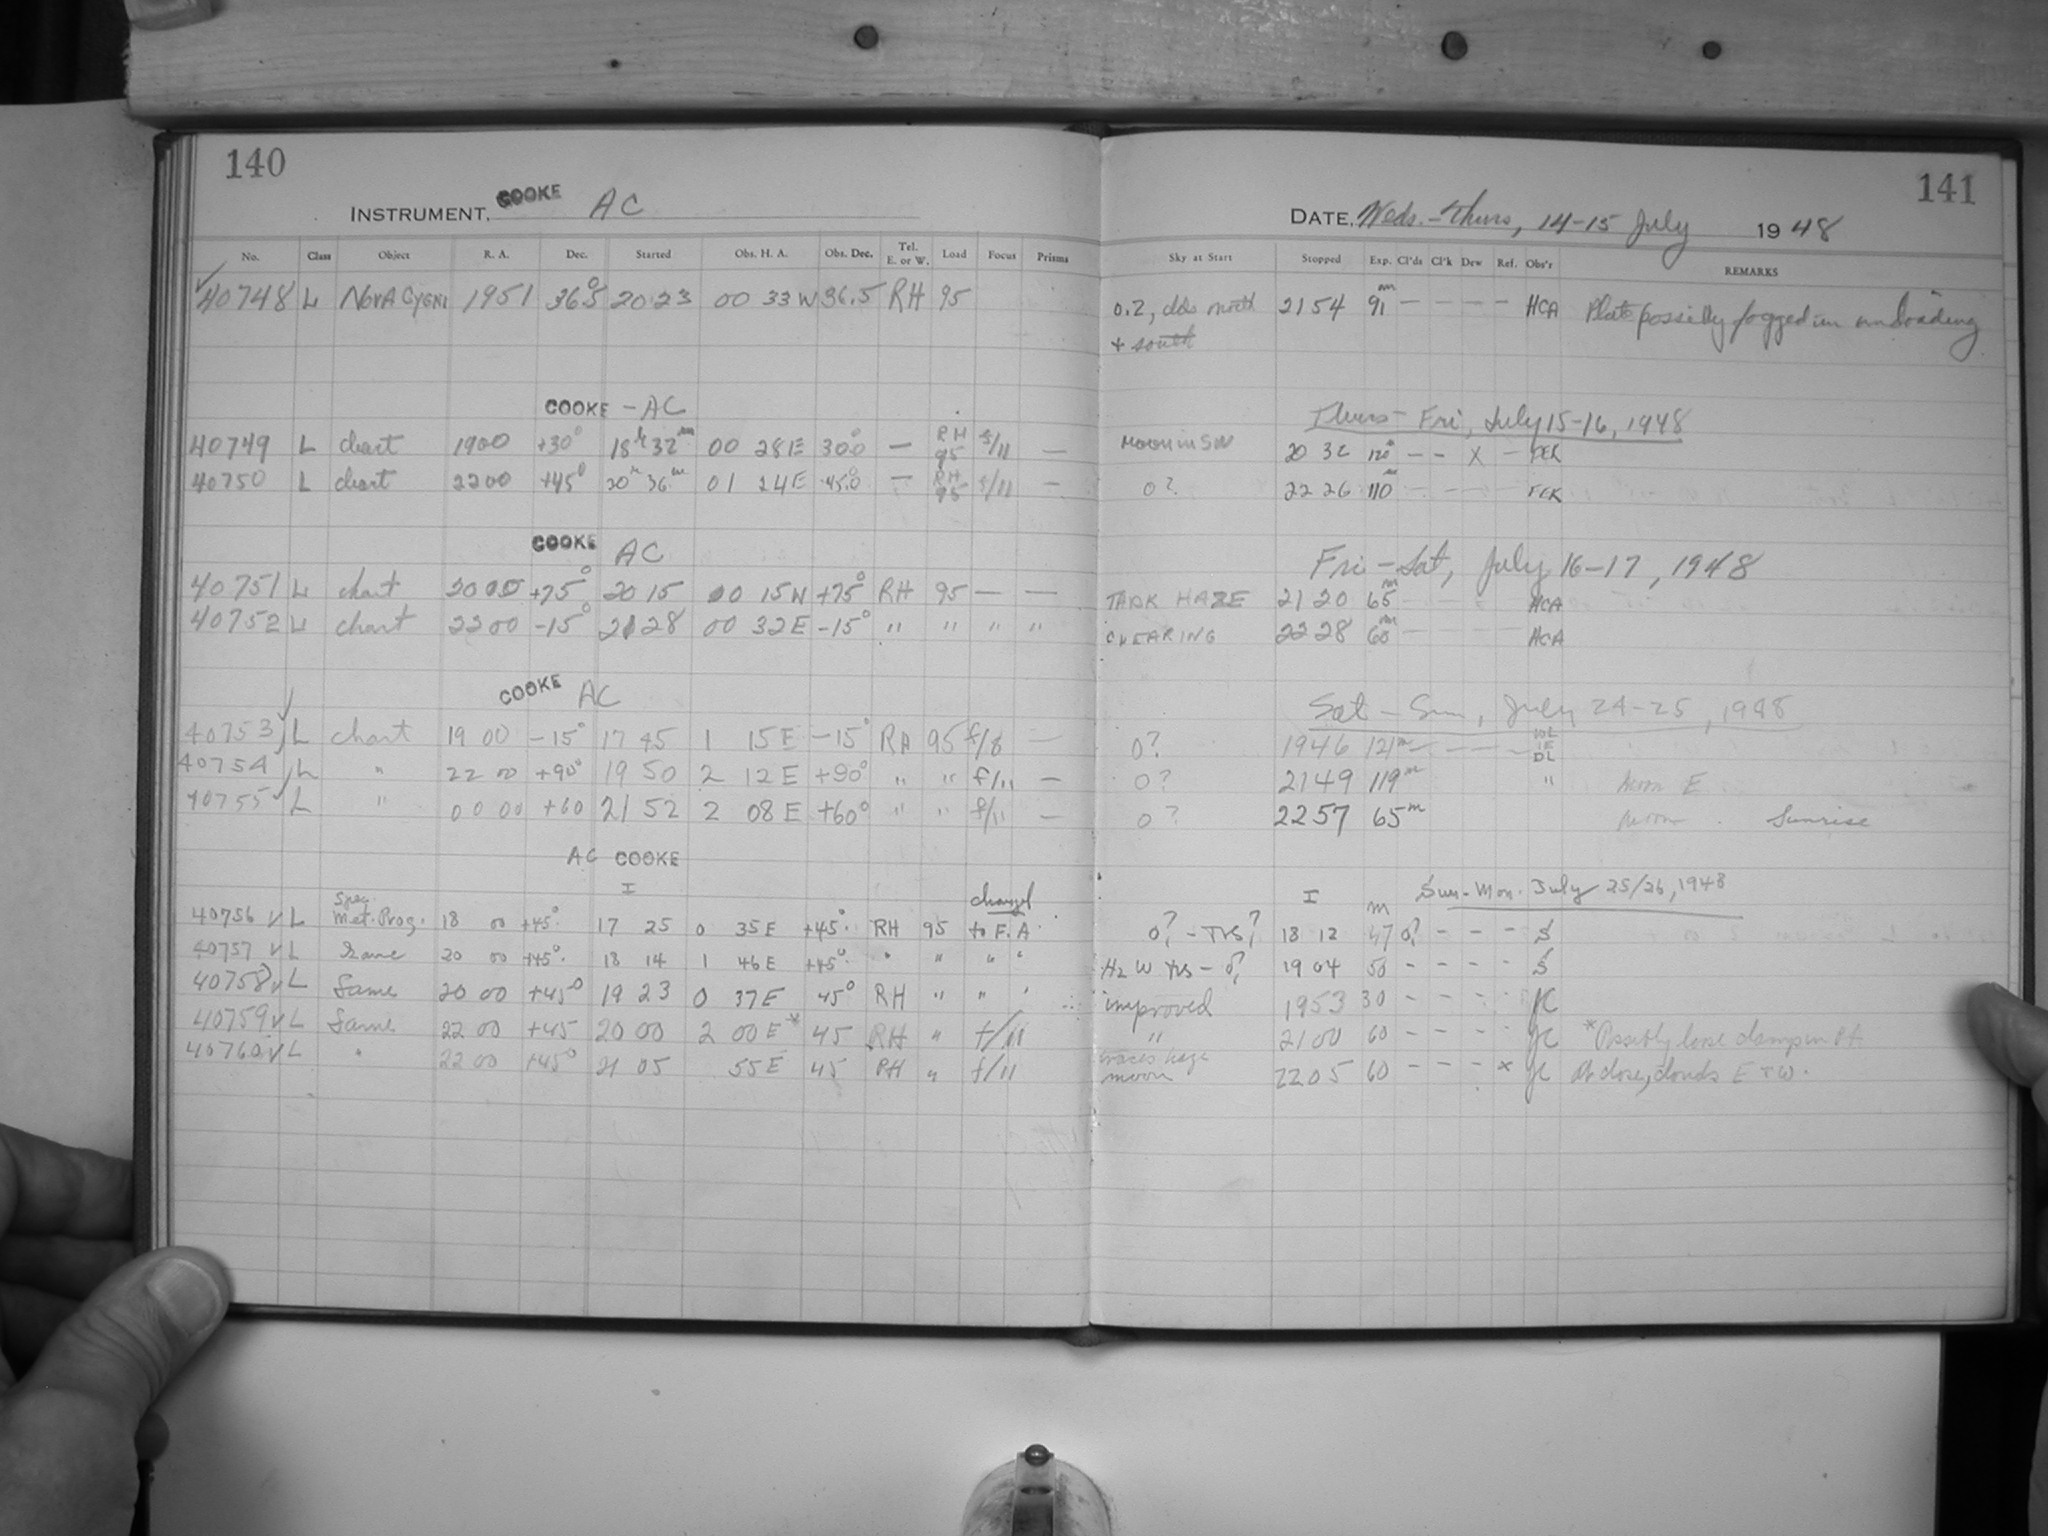 140
INSTRUMENT, COOKE AC
No. Class Object R. A. Dec. Started Obs. H. A. Obs. Dec. Tel. E. or W. Load Focus Prisms
40748 L NOVA CYGNI 1951 36°.5 20 23 00 33 W 36.5 RH 95
COOKE - AC
40749 L chart 1900 +30° 18h 32m 00 28 E 30.0° — RH 95 f/11 —
40750 L chart 2200 +45° 20h 36m 01 24 E 45.0° — RH 95 f/11 —
COOKE AC
40751 L chart 20 00 +75° 20 15 00 15 W +75° RH 95 — —
40752 L chart 22 00 -15° 21 28 00 32 E -15° " " " "
COOKE AC
40753 L chart 19 00 -15° 17 45 1 15 E -15° RH 95 f/8 —
40754 L " 22 00 +90° 19 50 2 12 E +90° " " f/11 —
40755 L " 00 00 +60 21 52 2 08 E +60° " " f/11 —
AC COOKE
I
Spec. changed
40756 L Met. Prog. 18 00 +45° 17 25 0 35 E +45° RH 95 to F. A.
40757 L Same 20 00 +45° 18 14 1 46 E +45° " " " "
40758 L Same 20 00 +45° 19 23 0 37 E 45° RH " " "
40759 L Same 22 00 +45 20 00 2 00 E* 45 RH " f/11
40760 L " 22 00 +45° 21 05 55 E 45 RH " f/11
141
DATE, Weds. - Thurs, 14-15 July 1948
Sky at Start Stopped Exp. Cl'ds Cl'k Dew Ref. Obs'r REMARKS
0.2, clds north 21 54 91m — — — — HCA Plate possibly fogged in unloading
+ south
Thurs - Fri, July 15-16, 1948
MOON IN SW 20 32 120m — — X —
0? 22 26 110m — — — —
Fri - Sat, July 16-17, 1948
HAZE 21 20 65m HCA
CLEARING 22 28 60m HCA
Sat - Sun, July 24-25, 1948
0? 1946 121m — — — — DL
0? 2149 119m " Moon E
0? 2257 65m Moon Sunrise
I m Sun - Mon. July 25/26, 1948
0? - TRS? 18 12 47 0? - - - S
Hz W TRS - 0? 19 04 50 - - - - S
improved 1953 30 - - - - JC
" 21 00 60 - - - - JC *Possibly loose clamp in
traces haze
moon 22 05 60 - - - x JC At close, clouds E + W.